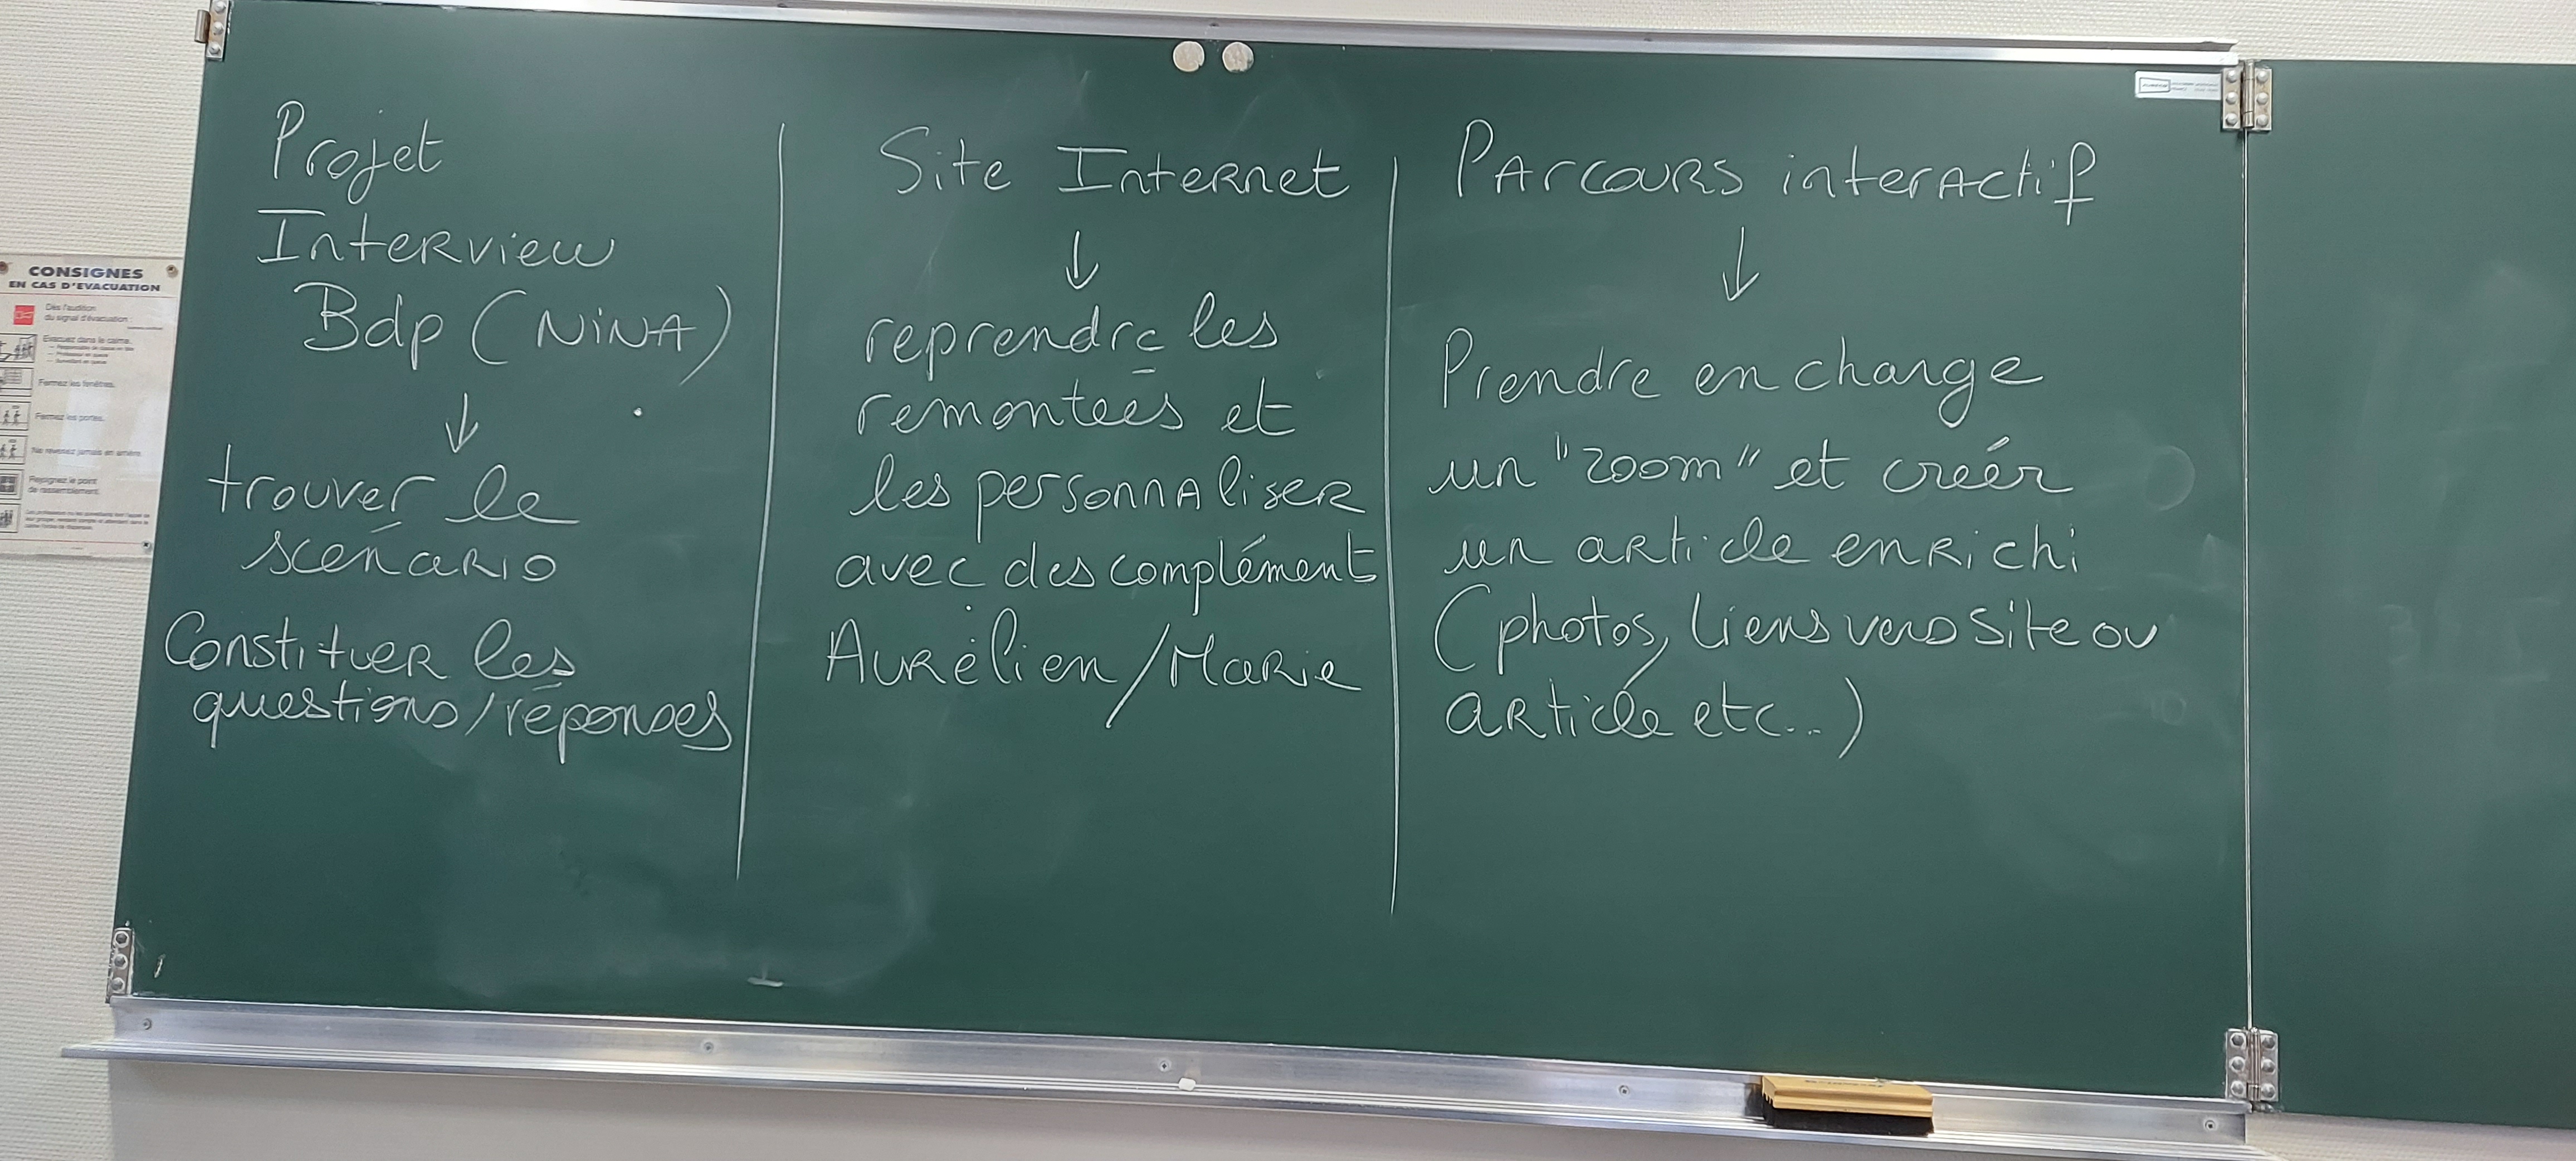 Projet
Interview
Bdp (NiNA)
↓
trouver le
scénario
Constituer les
questions/réponses
Site Internet
↓
reprendre les
remontées et
les personnaliser
avec des complément
Aurélien/Marie
PArcours interactif
↓
Prendre en charge
un "zoom" et créér
un article enrichi
(photos, liens vers site ou
article etc...)
CONSIGNES
EN CAS D'EVACUATION
Dès l'audition
du signal d'évacuation :
Evacuez dans le calme.
Fermez les fenêtres.
Fermez les portes.
Ne revenez jamais en arrière.
Rejoignez le point
de rassemblement.